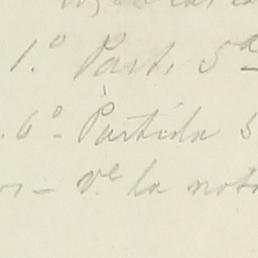 1.º Part. 5ª
. 6º - Partida 5
- vᵉ la nota